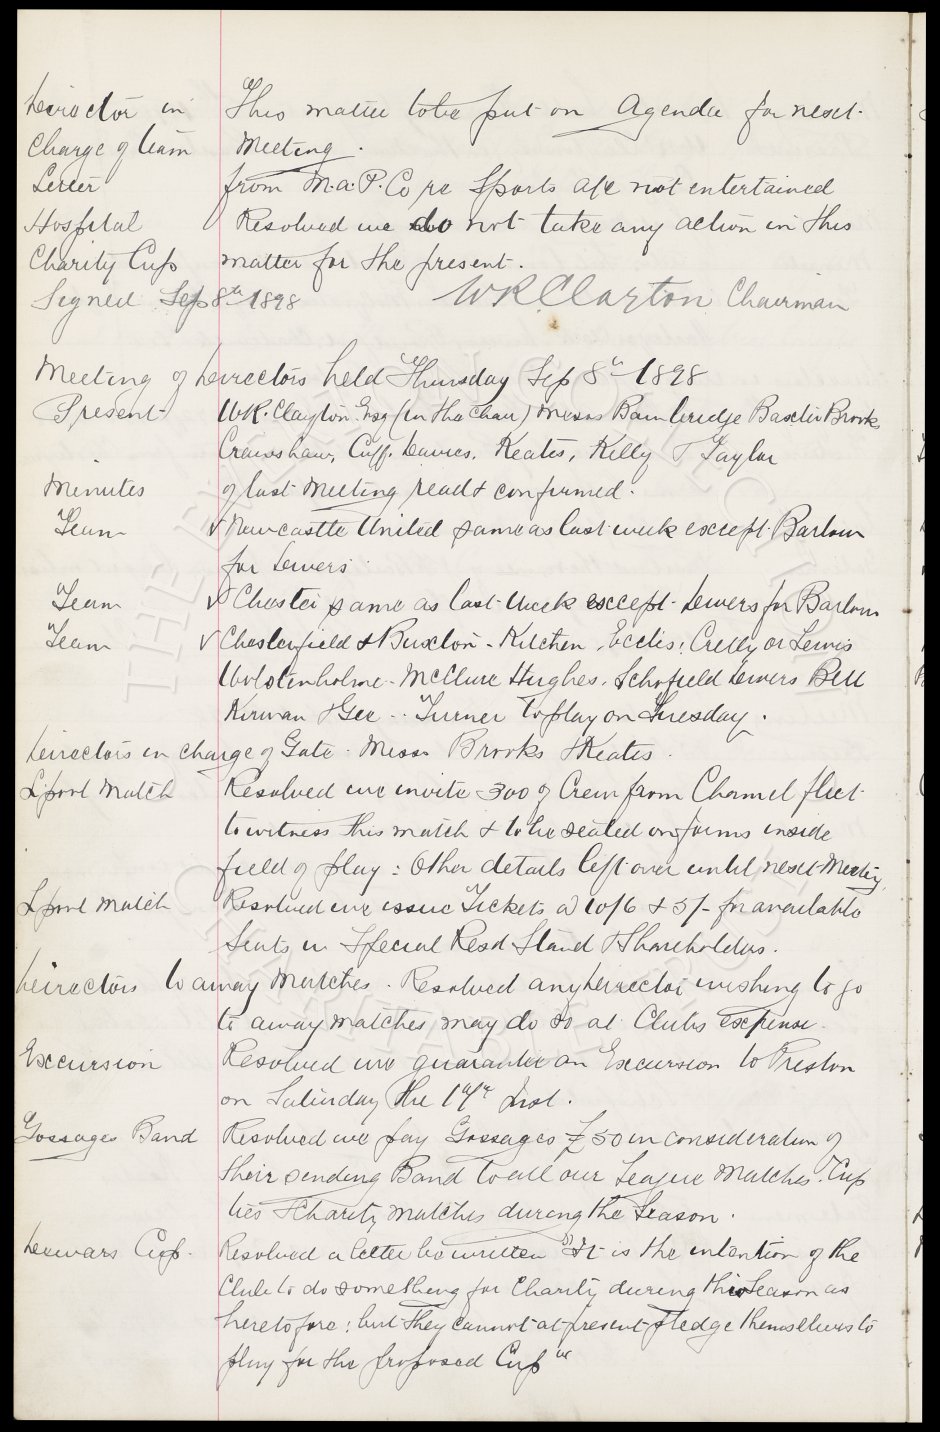 Director in This matter to be put on Agenda for next
Charge of team Meeting.
Letter from M.A.P. Co re Sports a/c not entertained
Hospital Resolved we do not take any action in this
Charity Cup matter for the present.
Signed Sep 8th 1898 WR Clayton Chairman
Meeting of Directors held Thursday Sep 8th 1898
Present WR. Clayton Esq (in the Chair) Messrs Bainbridge Baxter Brooks
Crawshaw, Cuff. Davies. Keates, Kelly & Taylor
Minutes of last Meeting read & confirmed.
Team ✓ Newcastle United same as last week except Barlow
for Dewers
Team ✓ Chester same as last Week except Dewers for Barlow
Team ✓ Chesterfield & Buxton - Kitchen, Eccles, Crelly or Lewis
Wolstenholme - McClure Hughes. Schofield Dewers Bell
Kirwan & Gee - Turner to play on Tuesday.
Directors in charge of Gate. Messrs Brooks & Keates.
L'pool Match Resolved we invite 300 of Crew from Channel fleet
to witness this match & to be seated on forms inside
field of play: Other details left over until next Meeting.
L'pool Match Resolved we issue Tickets @ 10/6 & 5/- for available
Seats in Special Resd Stand & Shareholders.
Directors to away Matches. Resolved any Director wishing to go
to away matches may do so at Clubs expense.
Excursion Resolved we guarantee an Excursion to Preston
on Saturday the 17th inst.
Gossages Band Resolved we pay Gossages £50 in consideration of
their sending Band to all our League Matches. Cup
ties & Charity matches during the Season.
Dewars Cup. Resolved a letter be written "It is the intention of the
Club to do something for Charity during this Season as
heretofore; but they cannot at present pledge themselves to
play for the proposed Cup"